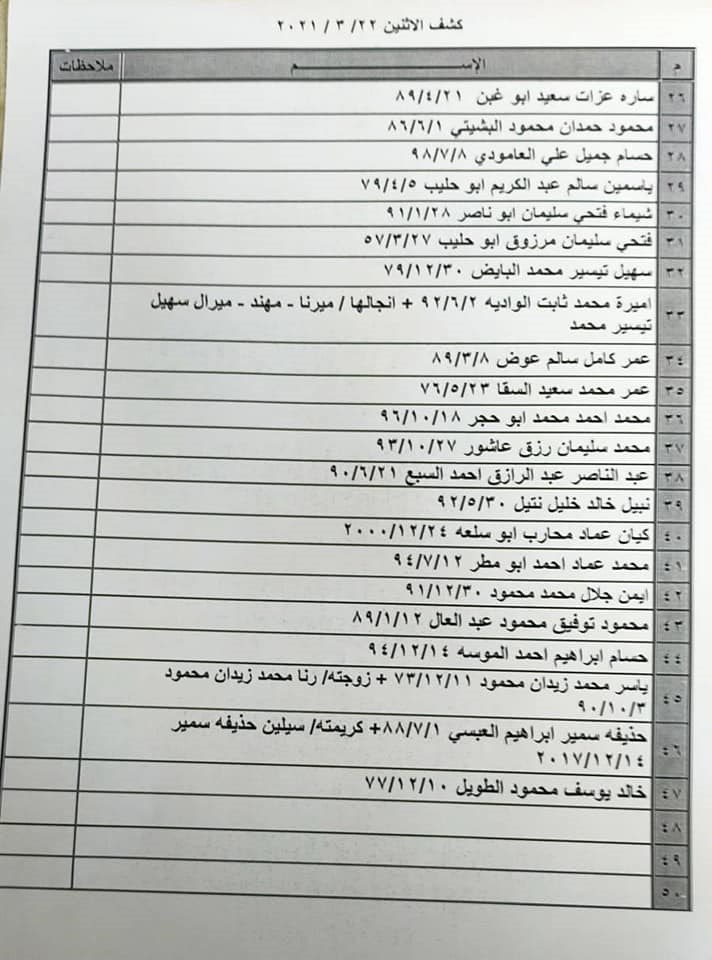 كشف الاثنين ٢٢/ ٣ / ٢٠٢١
م الإســـــــــــــــم ملاحظات
٢٦ ساره عزات سعيد ابو غبن ٨٩/٤/٢١
٢٧ محمود حمدان محمود البشيتي ٨٦/٦/١
٢٨ حسام جميل علي العامودي ٩٨/٧/٨
٢٩ ياسمين سالم عبد الكريم ابو حليب ٧٩/٤/٥
٣٠ شيماء فتحي سليمان ابو ناصر ٩١/١/٢٨
٣١ فتحي سليمان مرزوق ابو حليب ٥٧/٣/٢٧
٣٢ سهيل تيسير محمد البايض ٧٩/١٢/٣٠
٣٣ اميرة محمد ثابت الواديه ٩٢/٦/٢ + انجالها / ميرنا - مهند - ميرال سهيل
تيسير محمد
٣٤ عمر كامل سالم عوض ٨٩/٣/٨
٣٥ عمر محمد سعيد السقا ٧٦/٥/٢٣
٣٦ محمد احمد محمد ابو حجر ٩٦/١٠/١٨
٣٧ محمد سليمان رزق عاشور ٩٣/١٠/٢٧
٣٨ عبد الناصر عبد الرازق احمد السبع ٩٠/٦/٢١
٣٩ نبيل خالد خليل نتيل ٩٢/٥/٣٠
٤٠ كيان عماد محارب ابو سلعه ٢٠٠٠/١٢/٢٤
٤١ محمد عماد احمد ابو مطر ٩٤/٧/١٢
٤٢ ايمن جلال محمد محمود ٩١/١٢/٣٠
٤٣ محمود توفيق محمود عبد العال ٨٩/١/١٢
٤٤ حسام ابراهيم احمد الموسه ٩٤/١٢/١٤
٤٥ ياسر محمد زيدان محمود ٧٣/١٢/١١ + زوجته/ رنا محمد زيدان محمود
٩٠/١٠/٣
٤٦ حذيفه سمير ابراهيم العبسي ٨٨/٧/١+ كريمته/ سيلين حذيفه سمير
٢٠١٧/١٢/١٤
٤٧ خالد يوسف محمود الطويل ٧٧/١٢/١٠
٤٨
٤٩
٥٠